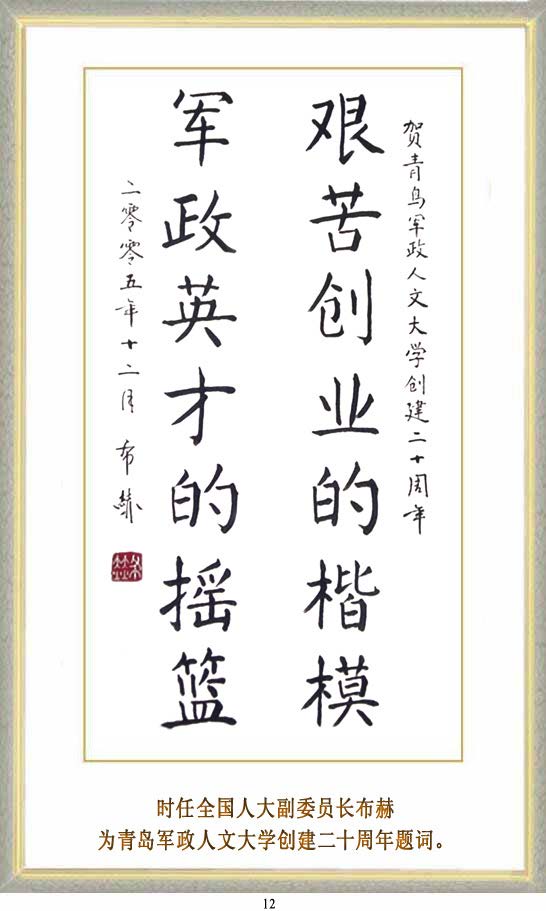 贺青岛军政人文大学创建二十周年
艰苦创业的楷模
军政英才的摇篮
二零零五年十二月 布赫
布赫
时任全国人大副委员长布赫
为青岛军政人文大学创建二十周年题词。
12